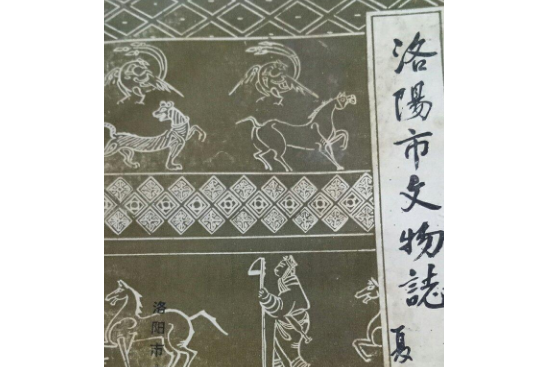 洛陽市文物誌
夏
洛阳市